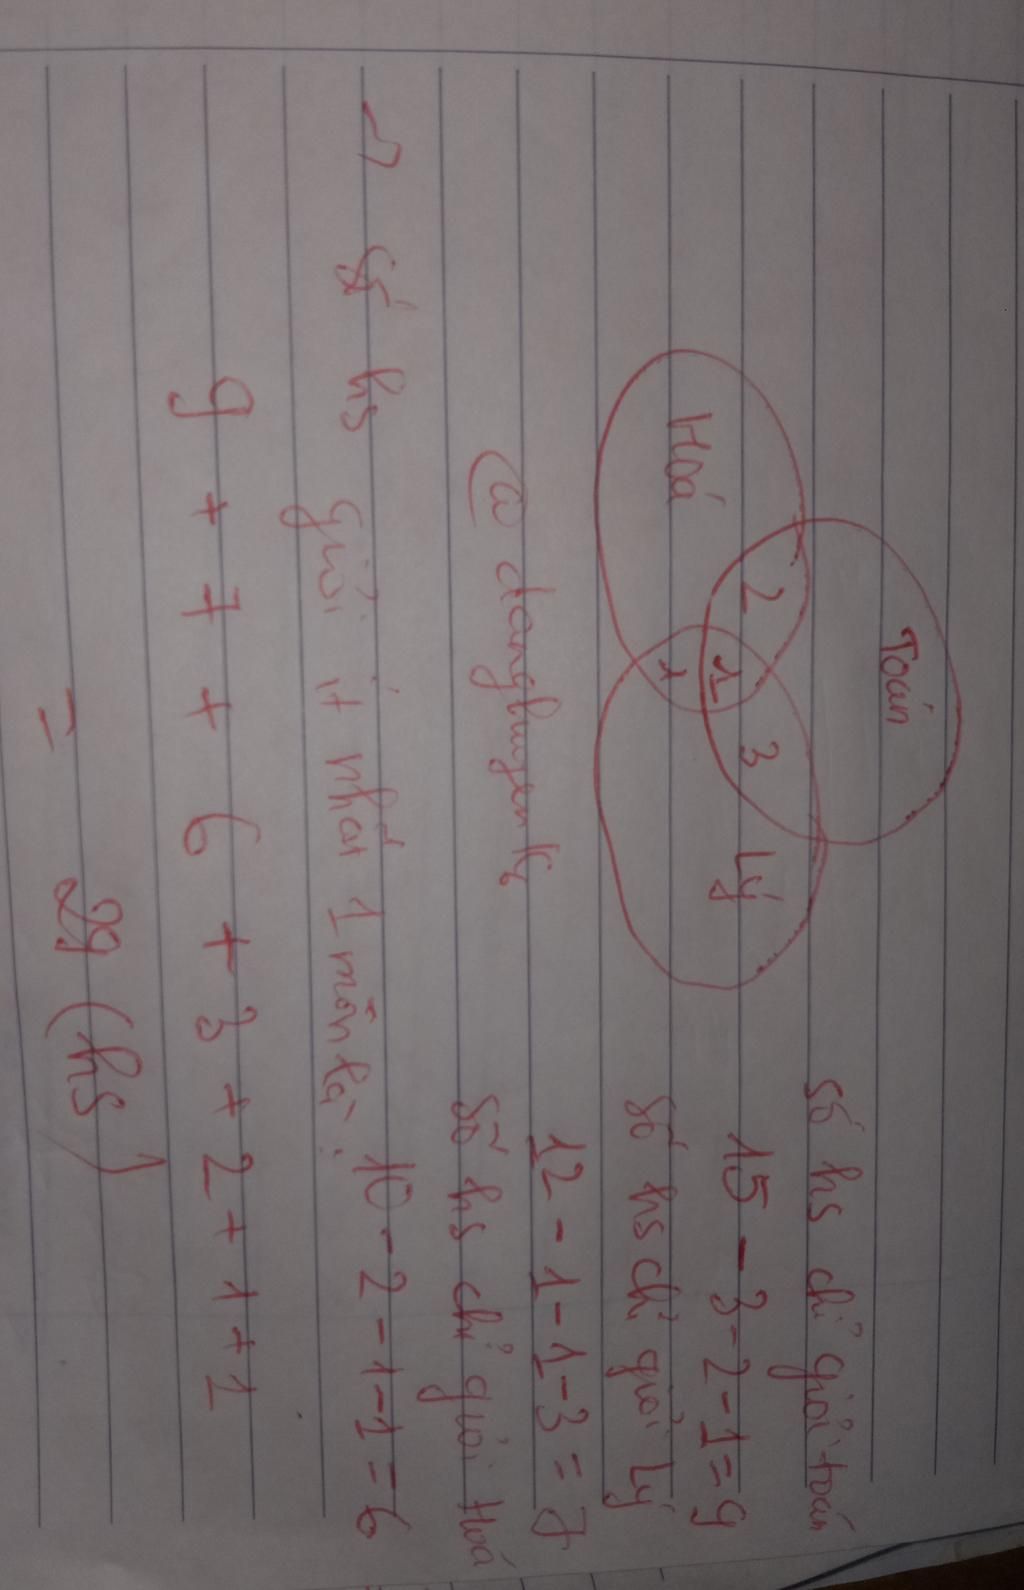 Toán
Hoá
2
1
3
1
Lý
số hs chỉ giỏi toán
15 - 3 - 2 - 1 = 9
số hs chỉ giỏi Lý
12 - 1 - 1 - 3 = 7
số hs chỉ giỏi Hoá
10 - 2 - 1 - 1 = 6
@danghuyenk
→ số hs giỏi ít nhất 1 môn là:
9 + 7 + 6 + 3 + 2 + 1 + 1
= 29 (hs)